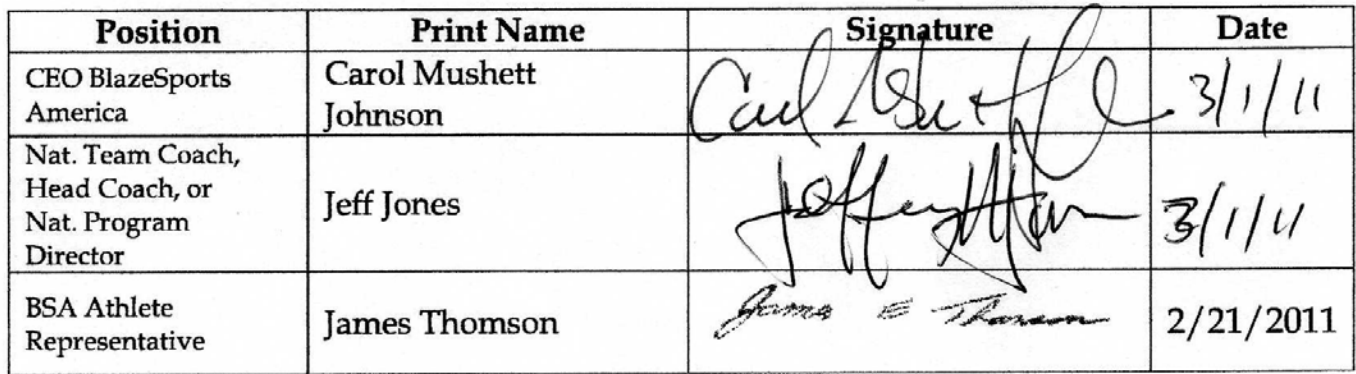 Position Print Name Signature Date
CEO BlazeSports
America
Carol Mushett
Johnson
3/1/11
Nat. Team Coach,
Head Coach, or
Nat. Program
Director
Jeff Jones
3/1/11
BSA Athlete
Representative
James Thomson
James E Thomson
2/21/2011